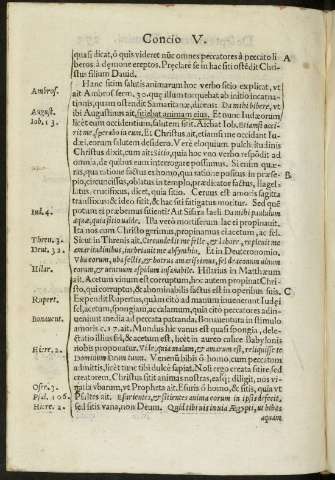 Concio V.
quasi dicat, ô quis videret nūc omnes peccatores à peccato li
beros à dęmone ereptos. Pręclarè se in hac siti ostēdit Chri-
stus filium Dauid.
A
Hanc sitim salutis animarum hoc verbo sitio explicat, vt
Ambros.
ait Ambros serm. 30. quę illum torquebat ab initio incarna-
tionis, quam ostendit Samaritanę, dicens: Da mihi bibere, vt
August.
ibi Augustinus ait, sitiebat animam eius. Et nunc Iudæorum
Iob. 13.
licèt eum occidentium, salutem sitit. Aiebat Iob, Etiamsi occi-
rit me, sperabo in eum. Et Christus ait, etiamsi me occidant Iu-
dæi, eorum salutem desidero. Verè eloquium pulchritudinis
Christus dixit, cum ait: Sitio, quia hoc vno verbo respōdit ad
omnia, de quibus eum interrogare possumus. Si enim quæ-
ris, qua ratione factus ex homo, qua ratione positus in præse-
B
pio, circuncisus, oblatus in templo, prædicator factus, flagel-
latus: crucifixus, dicet, quia sitio. Ceruus est amoris sagitta
transfixus: & ideo sitit, & hac siti fatigatus moritur. Sed quę
potum ei præbemus sitienti? Ait Sisara Iaeli Da mihi paululum
Iud. 4.
aquæ, quia sitio multùm. Illa verò mortiferum lac ei propinauit.
Ita nos cum Christo gerimus, propinamus ei acetum, ac fel.
Thren. 3.
Sicut in Threnis ait, Circundedit me felle, & labore, repleuit me
Deut. 32.
amaritudinibus, inebriauit me absynthio. Et in Deuteronomio,
Vua eorum, vua fellis, & botrus amarissimus, fel draconum vinum
Hilar.
eorum, & venenum aspidum insanabile. Hilarius in Matthæum
ait. Acetum vinum est corruptum, hoc autem propinat Chri-
sto, qui corruptus, & abominabilis factus est in operibus suis.
C
Rupert.
Expendit Rupertus, quàm citò ad manum inuenerunt Iudęi
fel, acetum, spongiam, ac calamum, quia citò peccatores adin-
Bonauent.
ueniunt media ad peccata patranda. Bonauentura in stimulo
amoris c. 17. ait. Mundus hic vanus est quasi spongia, dele-
ctatio illius fel, & acetum est, licèt in aureo calice Babylonis
Hiere. 2.
nobis proponatur. Vide, quia malum, & amarum est, reliquisse te
Dominum Deum tuum. Venenū bibis ô homo, cum peccatum
admittis, licèt tunc tibi dulcè sapiat. Noli ergo creata sitire sed
creatorem, Christus sitit animas nostras, easq; diligit, nos vi-
Osee. 3.
Psal. 106.
Psaltes ait. Esurientes, & sitientes anima eorum in ipsis defecit,
Hiere. 2.
sed sitis vana, non Deum. Quid tibi vis in via Ægypti, vt bibas
aquam